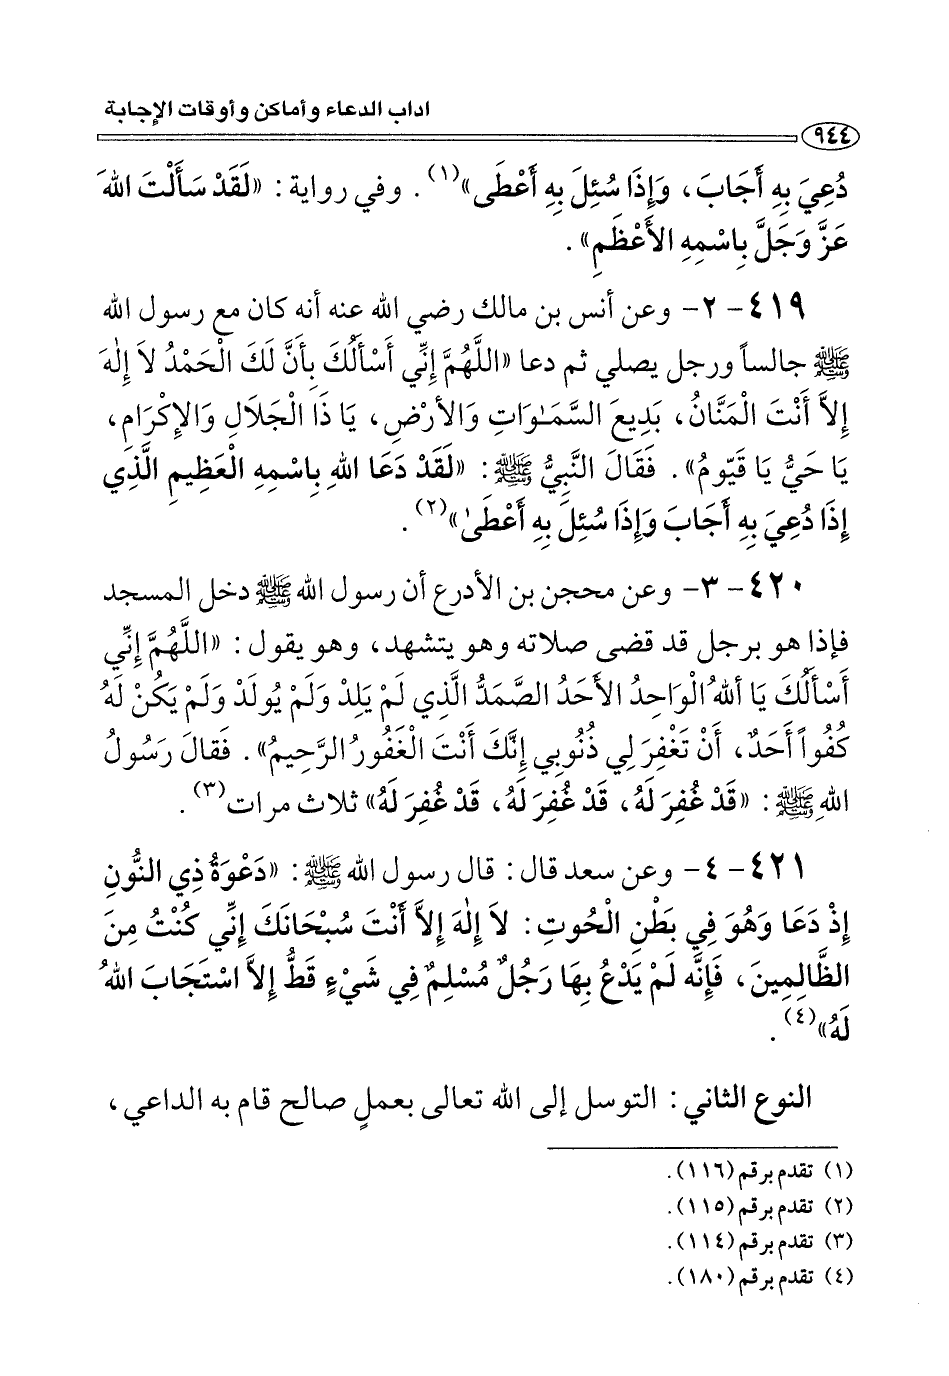 اداب الدعاء وأماكن وأوقات الإجابة
٩٤٤
دُعِيَ بِهِ أَجَابَ، وَإِذَا سُئِلَ بِهِ أَعْطَى»(١). وفي رواية: «لَقَدْ سَأَلْتَ اللهَ
عَزَّ وَجَلَّ بِاسْمِهِ الأَعْظَمِ».
٤١٩- ٢- وعن أنس بن مالك رضي الله عنه أنه كان مع رسول الله
ﷺ جالساً ورجل يصلي ثم دعا «اللَّهُمَّ إِنِّي أَسْأَلُكَ بِأَنَّ لَكَ الْحَمْدُ لاَ إِلٰهَ
إِلاَّ أَنْتَ الْمَنَّانُ، بَدِيعَ السَّمَـٰوَاتِ وَالأَرْضِ، يَا ذَا الْجَلَالِ وَالإِكْرَامِ،
يَا حَيُّ يَا قَيّومُ». فَقَالَ النَّبِيُّ ﷺ: «لَقَدْ دَعَا اللهِ بِاسْمِهِ الْعَظِيمِ الَّذِي
إِذَا دُعِيَ بِهِ أَجَابَ وَإِذَا سُئِلَ بِهِ أَعْطَىٰ»(٢).
٤٢٠- ٣- وعن محجن بن الأدرع أن رسول الله ﷺ دخل المسجد
فإذا هو برجل قد قضى صلاته وهو يتشهد، وهو يقول: «اللَّهُمَّ إِنِّي
أَسْأَلُكَ يَا أَللهُ الْوَاحِدُ الأَحَدُ الصَّمَدُ الَّذِي لَمْ يَلِدْ وَلَمْ يُولَدْ وَلَمْ يَكُنْ لَهُ
كُفُواً أَحَدٌ، أَنْ تَغْفِرَ لِي ذُنُوبِي إِنَّكَ أَنْتَ الْغَفُورُ الرَّحِيمُ». فَقَالَ رَسُولُ
اللهِ ﷺ: «قَدْ غُفِرَ لَهُ، قَدْ غُفِرَ لَهُ، قَدْ غُفِرَ لَهُ» ثلاث مرات(٣).
٤٢١- ٤- وعن سعد قال: قال رسول الله ﷺ: «دَعْوَةُ ذِي النُّونِ
إِذْ دَعَا وَهُوَ فِي بَطْنِ الْحُوتِ: لاَ إِلٰهَ إِلاَّ أَنْتَ سُبْحَانَكَ إِنِّي كُنْتُ مِنَ
الظَّالِمِينَ، فَإِنَّه لَمْ يَدْعُ بِهَا رَجُلٌ مُسْلِمٌ فِي شَيْءٍ قَطُّ إِلاَّ اسْتَجَابَ اللهُ
لَهُ»(٤).
النوع الثاني: التوسل إلى الله تعالى بعملٍ صالح قام به الداعي،
(١) تقدم برقم (١١٦).
(٢) تقدم برقم (١١٥).
(٣) تقدم برقم (١١٤).
(٤) تقدم برقم (١٨٠).